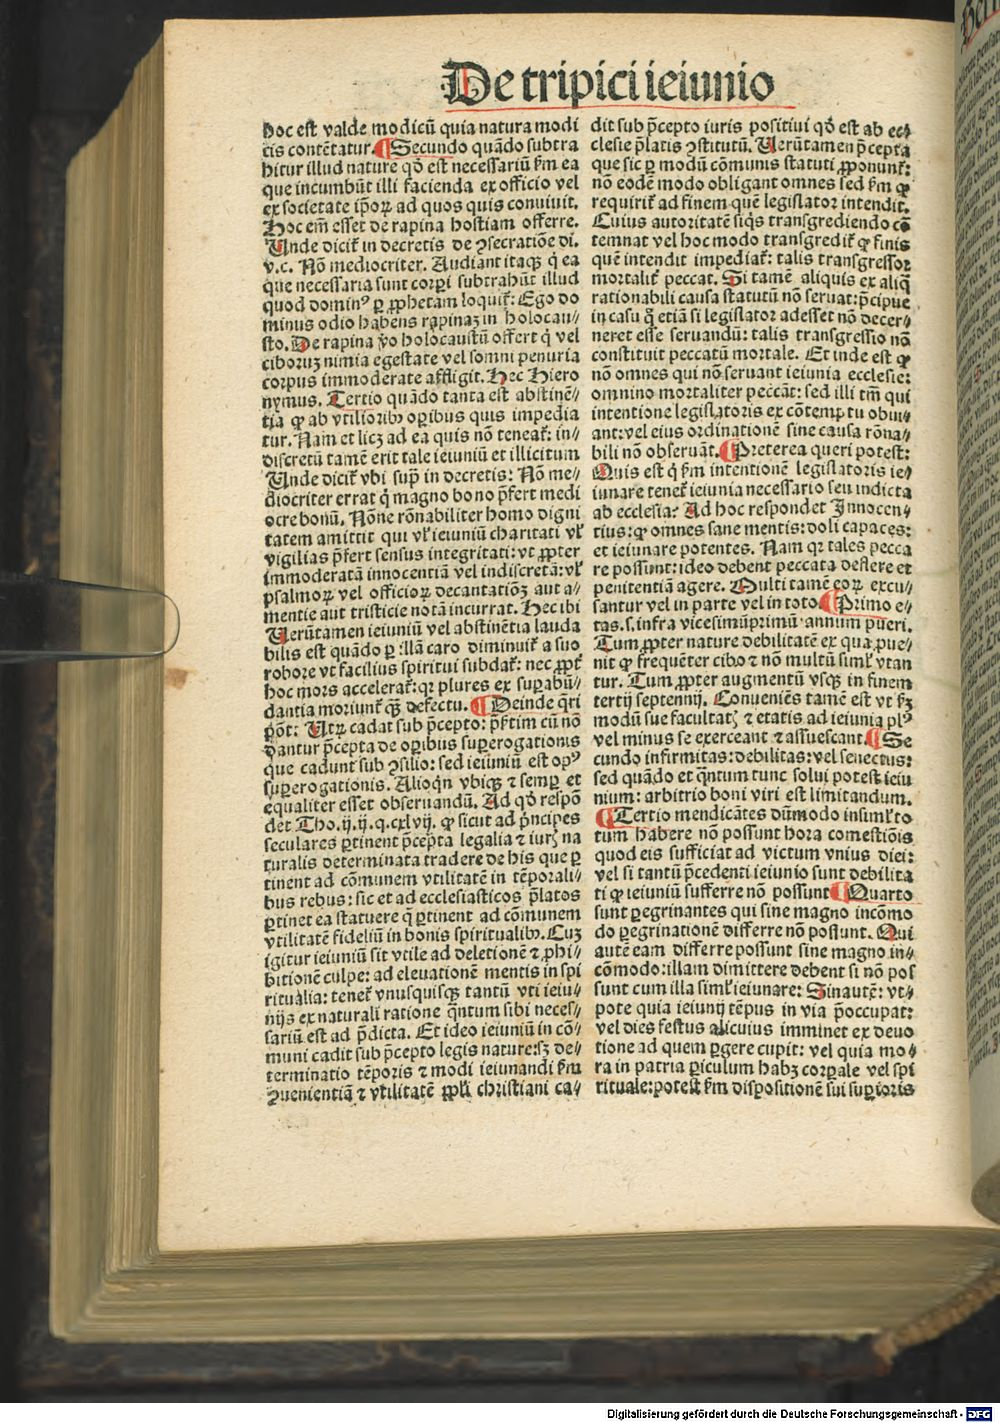 De tripici ieiunio
hoc est valde modicū quia natura modi
cis contētatur. ¶ Secundo quādo subtra
hitur illud nature qḋ est necessariū ẜm ea
que incumbūt illi facienda ex officio vel
ex societate ip̄oꝝ ad quos quis conuiuit.
Hoc em̄ esset de rapina hostiam offerre.
Unde dicit᷑ in decretis de ꝯsecratiōe di.
v.c. Nō mediocriter. Audiant itaqꝫ q̇ ea
que necessaria sunt corpꝛi subtrahūt illud
quod dominꝰ ꝑ ꝓphetam loquit᷑: Ego do
minus odio habens rapinaꝫ in holocau⸗
sto. De rapina ꝟo holocaustū offert q̇ vel
ciboruꝫ nimia egestate vel somni penuria
corpus immoderate affligit. Hec Hiero
nymus. Tertio quādo tanta est abstinē⸗
tia ꝙ ab vtilioribꝰ oꝑibus quis impedia
tur. Nam et licꝫ ad ea quis nō teneat᷑: in⸗
discretū tamē erit tale ieiuniū et illicitum
Unde dicit᷑ vbi sup̄ in decretis: Nō me⸗
diocriter errat q̇ magno bono p̄fert medi
ocre bonū. Nōne rōnabiliter homo digni
tatem amittit qui vl᷑ ieiuniū charitati vl᷑
vigilias p̄fert sensus integritati: vt ꝓpter
immoderatā innocentiā vel indiscretā: vl᷑
psalmoꝝ vel officioꝝ decantatiōꝫ aut a⸗
mentie aut tristicie notā incurrat. Hec ibi
Uerūtamen ieiuniū vel abstinētia lauda
bilis est quādo ꝑ illā caro diminuit᷑ a suo
robore vt facilius spiritui subdat᷑: nec ꝓpt᷑
hoc mors accelerat᷑: qꝛ plures ex suꝑabū⸗
dantia moriunt᷑ qꝫ defectu. ¶ Deinde q̄ri
pōt: Utꝝ cadat sub p̄cepto: p̄sertim cū nō
dantur p̄cepta de oꝑibus suꝑerogationis
que cadunt sub ꝯsilio: sed ieiuniū est opꝰ
suꝑerogationis. Alioqn̄ vbiqꝫ ⁊ semꝑ et
equaliter esset obseruandū. Ad qḋ respō
det Tho.ij.ij.q.cxlvij. ꝙ sicut ad p̄ncipes
seculares ꝑtinent p̄cepta legalia ⁊ iurꝭ na
turalis determinata tradere de his que ꝑ
tinent ad cōmunem vtilitatē in tēporali⸗
bus rebus: sic et ad ecclesiasticos p̄latos
ꝑtinet ea statuere q̄ ꝑtinent ad cōmunem
vtilitatē fideliū in bonis spiritualibꝰ. Cuꝫ
igitur ieiuniū sit vtile ad deletionē ⁊ ꝓhi⸗
bitionē culpe: ad eleuationē mentis in spi
ritualia: tenet᷑ vnusquisqꝫ tantū vti ieiu⸗
nijs ex naturali ratione q̄ntum sibi neces⸗
sariū est ad p̄dicta. Et ideo ieiuniū in cō⸗
muni cadit sub p̄cepto legis nature: sꝫ de⸗
terminatio tēporis ⁊ modi ieiunandi ẜm
ꝯuenientiā ⁊ vtilitatē ꝓpl̓i christiani ca⸗
dit sub p̄cepto iuris positiui qḋ est ab ec⸗
clesie p̄latis ꝯstitutū. Uerūtamen p̄cepta
que sic ꝑ modū cōmunis statuti ꝓponunt᷑:
nō eodē modo obligant omnes sed ẜm ꝙ
requirit᷑ ad finem quē legislator intendit.
Cuius autoritatē siq̇s transgrediendo cō
temnat vel hoc modo transgredit᷑ ꝙ finis
quē intendit impediat᷑: talis transgressor
mortalit᷑ peccat. Si tamē aliquis ex aliq̄
rationabili causa statutū nō seruat: p̄cipue
in casu q̄ etiā si legislator adesset nō decer⸗
neret esse seruandū: talis transgressio nō
constituit peccatū mortale. Et inde est ꝙ
nō omnes qui nō seruant ieiunia ecclesie:
omnino mortaliter peccāt: sed illi tm̄ qui
intentione legislatoris ex cōtemptu obui⸗
ant: vel eius ordinationē sine causa rōna⸗
bili nō obseruāt. ¶ Preterea queri potest:
Quis est q̇ ẜm intentionē legislatoris ie⸗
iunare tenet᷑ ieiunia necessario seu indicta
ab ecclesia? Ad hoc respondet Innocen⸗
tius: ꝙ omnes sane mentis: doli capaces:
et ieiunare potentes. Nam qꝛ tales pecca
re possunt: ideo debent peccata deflere et
penitentiā agere. Multi tamē eoꝝ excu⸗
santur vel in parte vel in toto ¶ Primo e⸗
tas.s. infra vicesimūprimū annum pueri.
Tum ꝓpter nature debilitatē ex qua pue⸗
nit ꝙ frequēter cibo ⁊ nō multū siml᷑ vtan
tur. Tum ꝓpter augmentū vsqꝫ in finem
tertij septennij. Conueniēs tamē est vt ẜꝫ
modū sue facultatꝭ ⁊ etatis ad ieiunia plꝰ
vel minus se exerceant ⁊ assuescant. ¶ Se
cundo infirmitas: debilitas: vel senectus:
sed quādo et q̄ntum tunc solui potest ieiu
nium: arbitrio boni viri est limitandum.
¶ Tertio mendicātes dūmodo insiml᷑ to
tum habere nō possunt hora comestiōis
quod eis sufficiat ad victum vnius diei:
vel si tantū p̄cedenti ieiunio sunt debilita
ti ꝙ ieiuniū sufferre nō possunt ¶ Quarto
sunt ꝑegrinantes qui sine magno incōmo
do ꝑegrinationē differre nō possunt. Qui
autē eam differre possunt sine magno in⸗
cōmodo: illam dimittere debent si nō pos
sunt cum illa siml᷑ ieiunare: Sinautē: vt⸗
pote quia ieiunij tēpus in via p̄occupat:
vel dies festus alicuius imminet ex deuo
tione ad quem ꝑgere cupit: vel quia mo⸗
ra in patria ꝑiculum habꝫ corꝑale vel spi
rituale: potest ẜm dispositionē sui suꝑioris
Digitalisierung gefördert durch die Deutsche Forschungsgemeinschaft - DFG